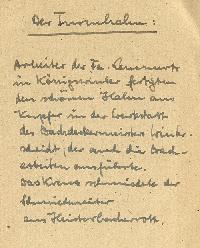 Der Turmhahn:
Arbeiter der Fa.
in Königswinter fertigten
den schönen Hahn aus
Kupfer in der Werkstatt
des Dachdeckermeister
scheidt, der auch die Dach-
arbeiten ausführte.
Das Kreuz schmiedete der
Schmiedmeister
aus Heisterbacherrott.